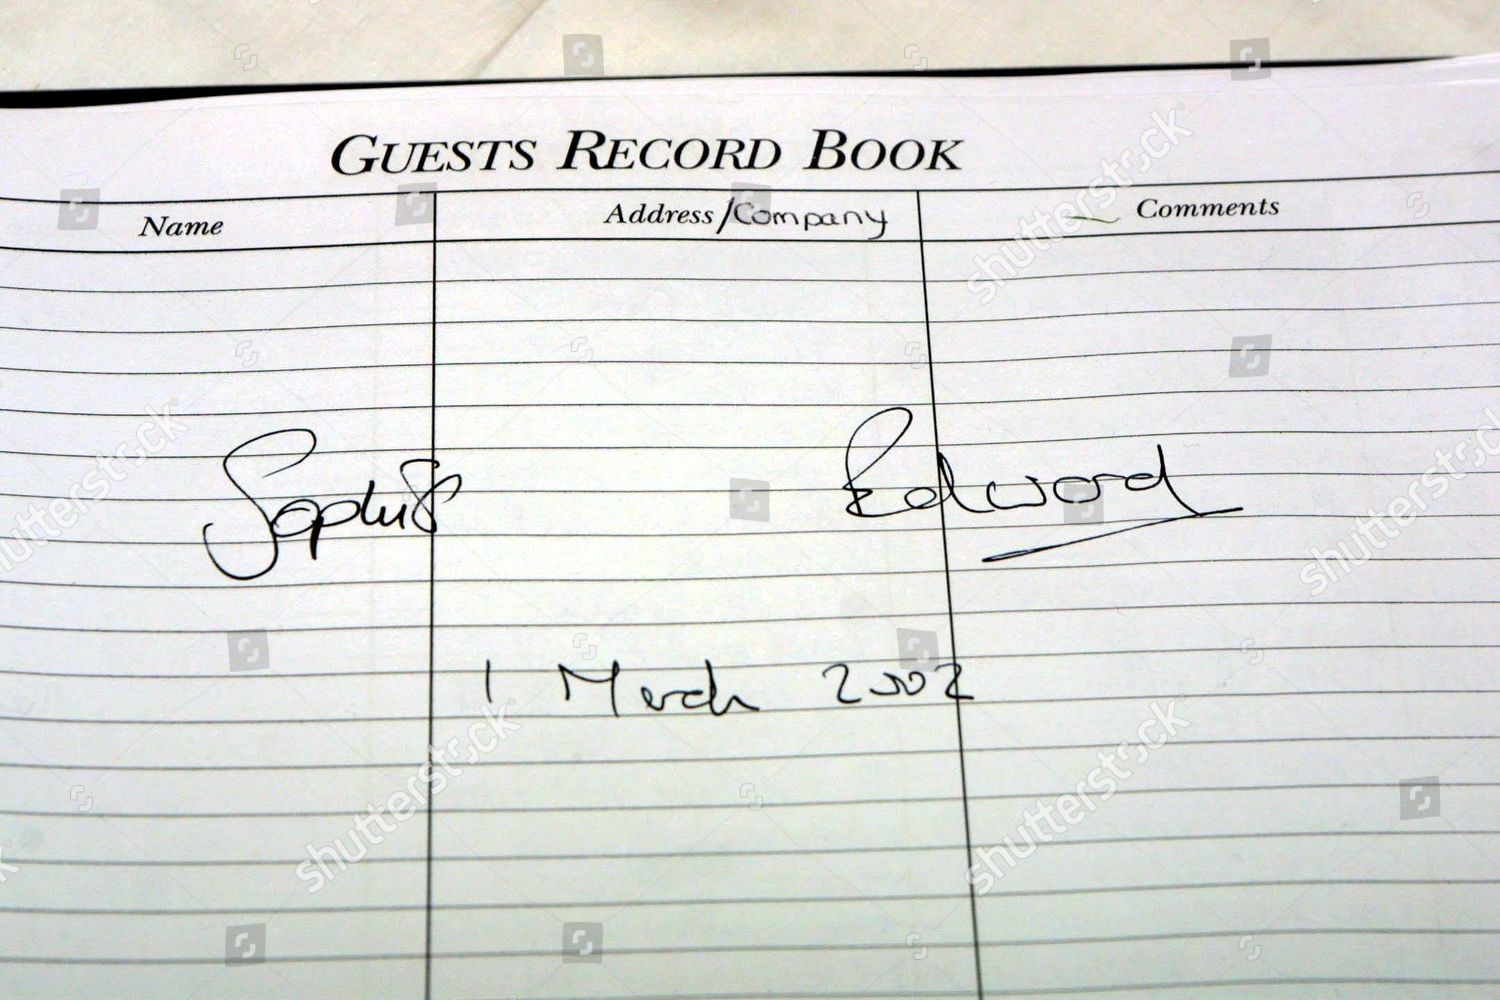 GUESTS RECORD BOOK
Name Address/Company Comments
Sophie Edward
1 March 2002
shutterstock
shutterstock
shutterstock
shutterstock
shutterstock
shutterstock